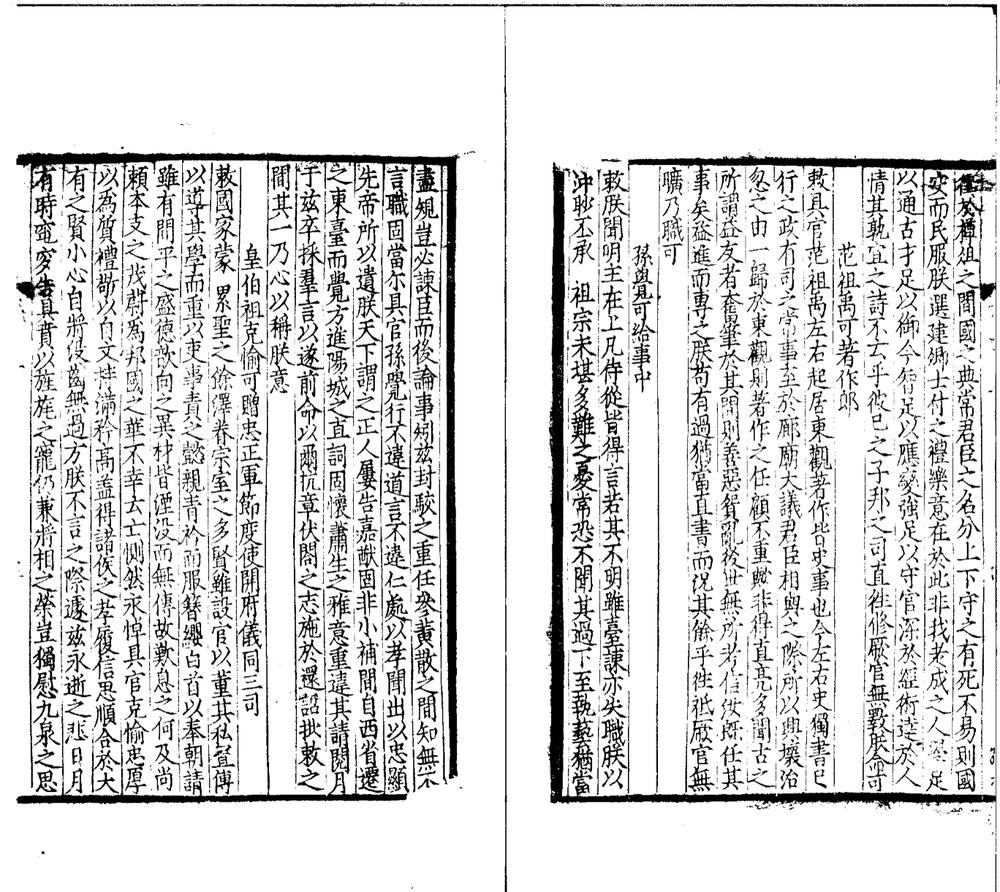 樽俎之間國之典常君臣之名分上下守之有死不易則國
安而民服朕選建卿士付之禮樂意在於此非我老成之人學足
以通古才足以御今智足以應變強足以守官深於經術達於人
情其孰宜之詩不云乎彼己之子邦之司直往修厥官無斁朕命可
范祖禹可著作郎
敕具官范祖禹左右起居東觀著作皆史事也今左右史獨書已
行之政有司之常事至於廊廟大議君臣相與之際所以興壞治
忽之由一歸於東觀則著作之任顧不重歟非得直亮多聞古之
所謂益友者奮筆於其間則善惡貿亂後世無所考信汝既任其
事矣益進而專之朕苟有過猶當直書而況其餘乎往祗厥官無
曠乃職可
孫覺可給事中
敕朕聞明主在上凡侍從皆得言若其不明雖臺諫亦失職朕以
沖眇丕承 祖宗未堪多難之憂常恐不聞其過下至執藝猶當
盡規豈必諫臣而後論事矧茲封駮之重任參黃散之間知無不
言職固當亦具官孫覺行不違道言不違仁處以孝聞出以忠顯
先帝所以遺朕天下謂之正人屢告嘉猷固非小補間自西省遷
之東臺而覺方進陽城之直詞固懷蕭生之雅意重違其請閱月
于茲卒採羣言以遂前命以爾抗章伏閤之志施於還詔批敕之
間其一乃心以稱朕意
皇伯祖克愉可贈忠正軍節度使開府儀同三司
敕國家蒙 累聖之餘澤眷宗室之多賢雖設官以董其私置傅
以導其學而重以吏事責之懿親青衿而服簪纓白首以奉朝請
雖有間平之盛德歆向之異材皆湮没而無傳故歎息之何及尚
賴本支之茂蔚為邦國之華不幸云亡惻然永悼具官克愉忠厚
以為質禮樂以自文持滿矜高蓋得諸侯之孝履信思順合於大
有之賢小心白將没齒無過方朕不言之際遽茲永逝之悲日月
有時窀穸告具賁以旌旄之寵仍兼將相之榮豈獨慰九泉之思